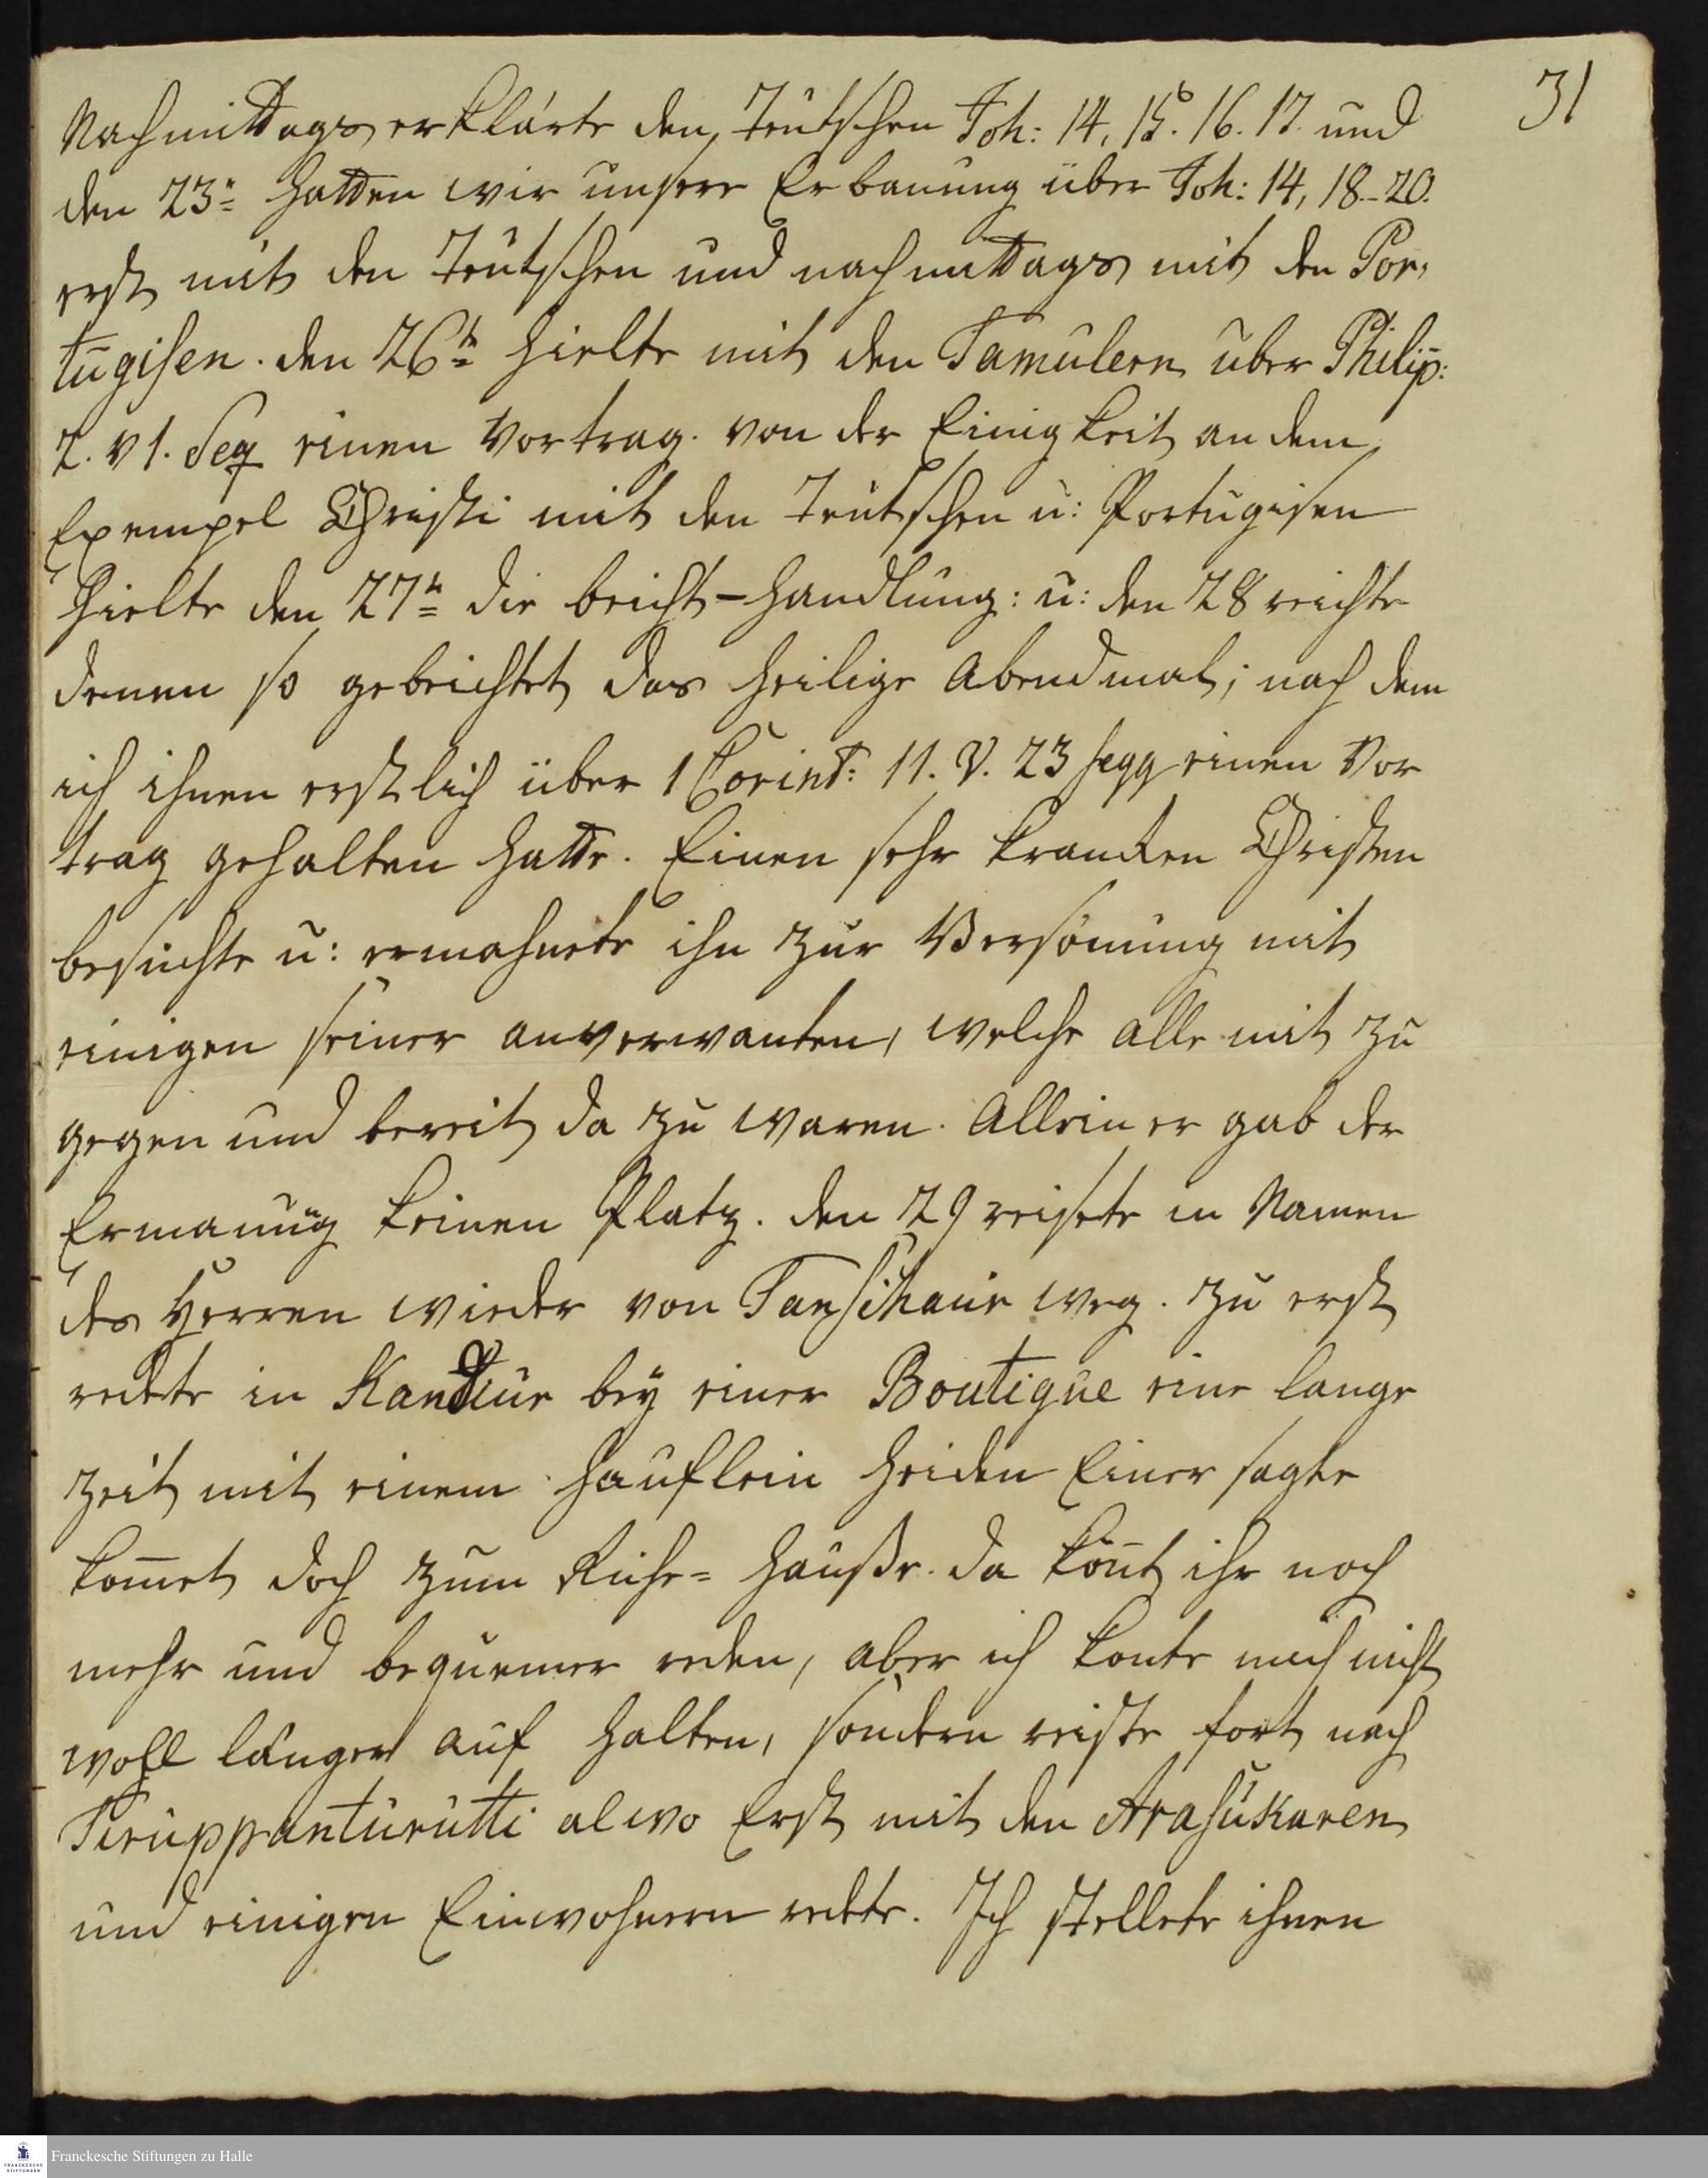 31
Nachmittags erklärte den Teutschen Joh: 14, 15. 16. 17. und
den 23n hatten wir unsere Erbauung über Joh: 14, 18.-20.
erst mit den Teutschen und nachmittags mit den Por,
tugisen. den 26tn hielte mit den Tamulern über Philip:
2. v 1. Seq einen Vortrag. von der Einigkeit an dem
Exempel Christi mit den Teutschen u: Portugisen
hielte den 27tn die beicht-handlung: u: den 28 reichte
denen so gebeichtet das heilige Abendmal; nach dem
ich ihnen erstlich über 1 Corint: 11. V. 23 seqq einen Vor
trag gehalten hatte. Einen sehr krancken Christen
besuchte u: ermahnete ihn zur Versönung mit
einigen seiner anverwanten, welche alle mit zu
gegen und bereit da zu waren. Allein er gab der
Ermanung keinen Platz. den 29 reisete im Namen
des Herren wieder von Tanschaur weg. Zu erst
redete in bey einer Boutique eine lange
zeit mit einem häuflein Heiden Einer sagte
kom̄et doch zum Ruhe= hauße. da kön̄t ihr noch
mehr und bequemer reden, aber ich konte mich nicht
wohl länger auf halten, sondern reiste fort nach
Tiruppanturutti alwo Erst mit den Arasukaren
und einigen Einwohnern redete. Ich stellete ihnen
Franckesche Stiftungen zu Halle